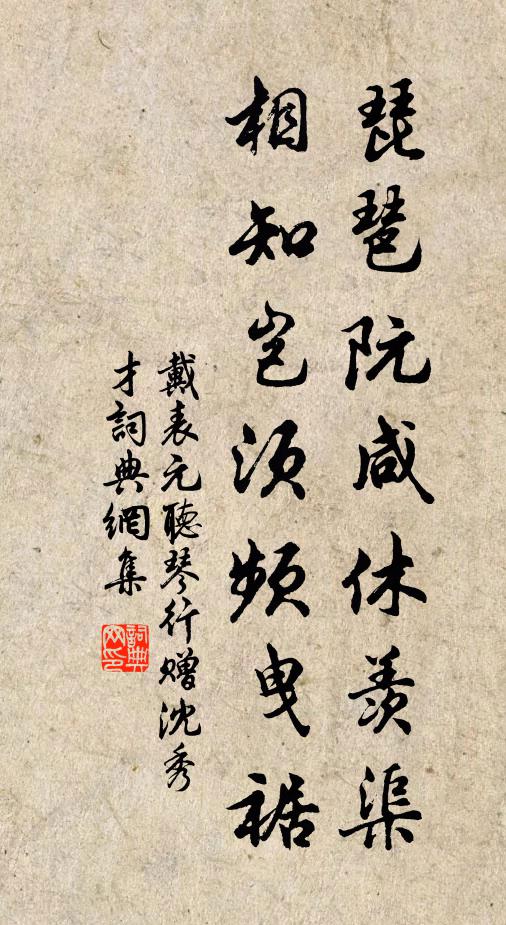 琵琶阮咸休羨渠
相知豈須頻曳裾
戴表元聽琴行贈沈秀
才詞典網集
詞典
网印